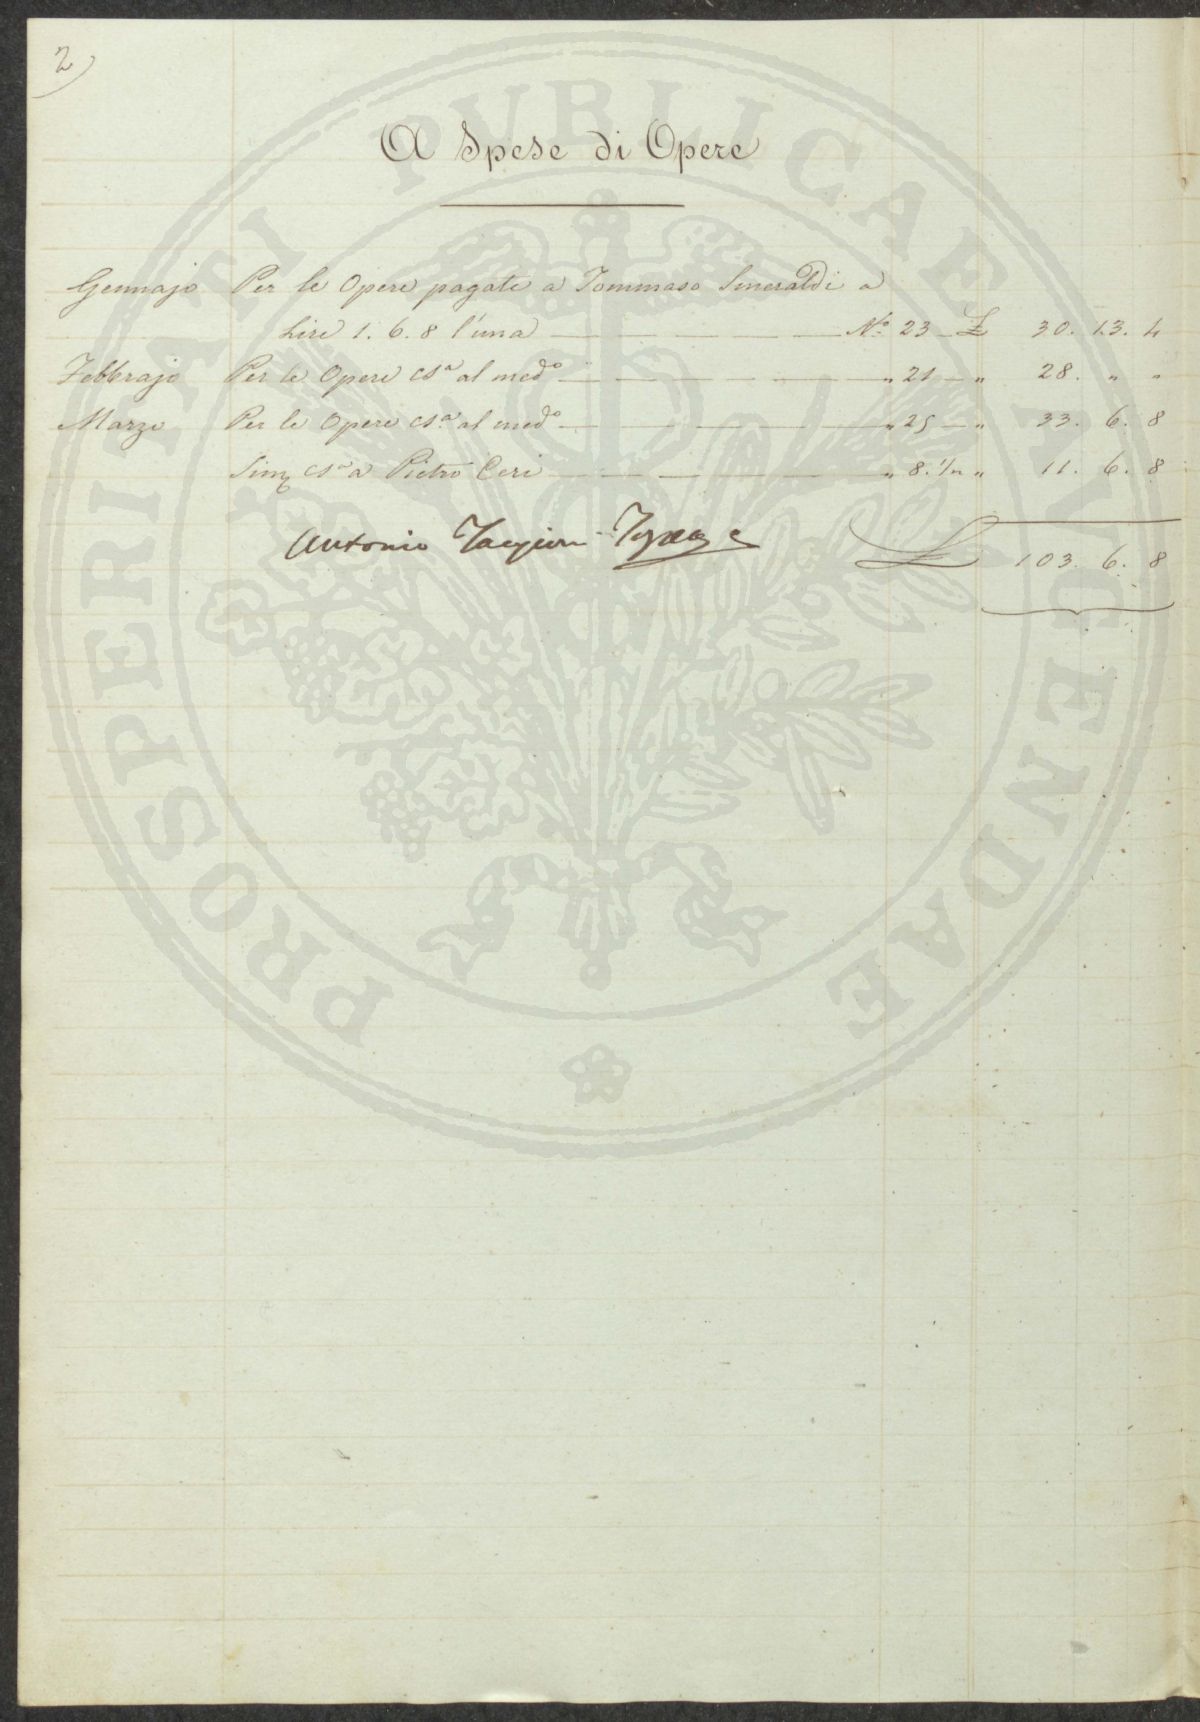 2)
A Spese di Opere
Gennajo Per le Opere pagate a Tommaso Smeraldi a
Lire 1. 6. 8 l'una N.º 23 £ 30. 13. 4
Febbrajo Per le Opere cs.ª al med.º " 21 " 28. " "
Marzo Per le Opere cs.ª al med.º " 25 " 33. 6. 8
cs.ª a Pietro Ceri " 8. 1/2 " 11. 6. 8
Antonio
£ 103. 6. 8
PROSPERITATI PUBLICAE AUGENDAE